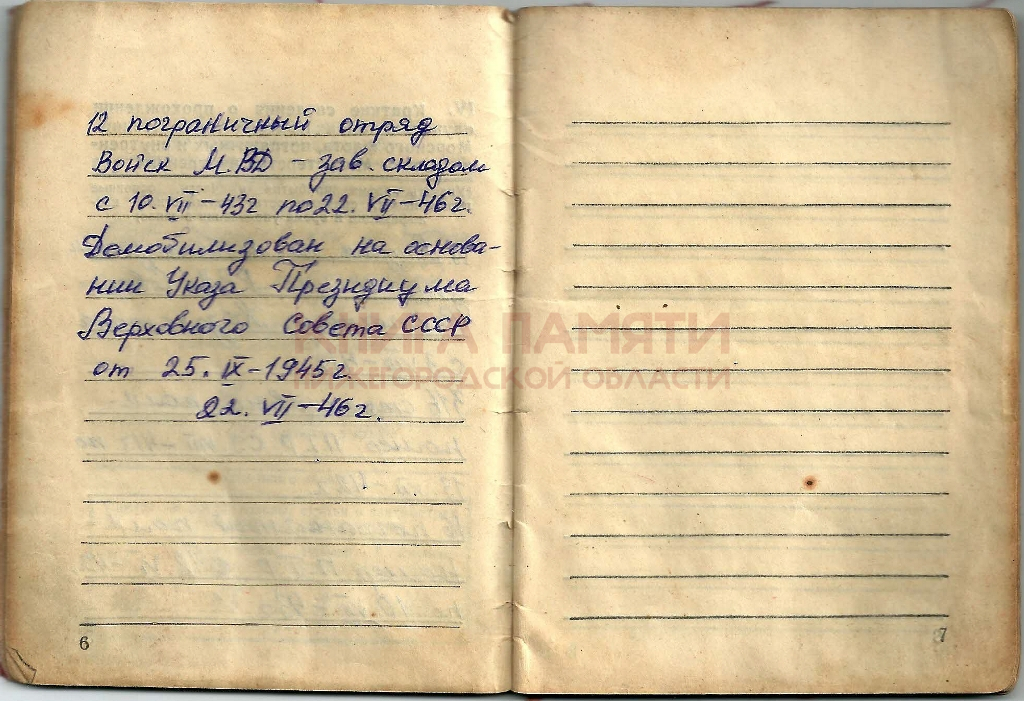 12 пограничный отряд
Войск МВД – зав. складом
с 10. VII – 43г по 22. VII – 46г.
Демобилизован на основа-
нии Указа Президиума
Верховного Совета СССР
от 25. IX – 1945г.
22. VII – 46г.
КНИГА ПАМЯТИ
НИЖЕГОРОДСКОЙ ОБЛАСТИ
6
7